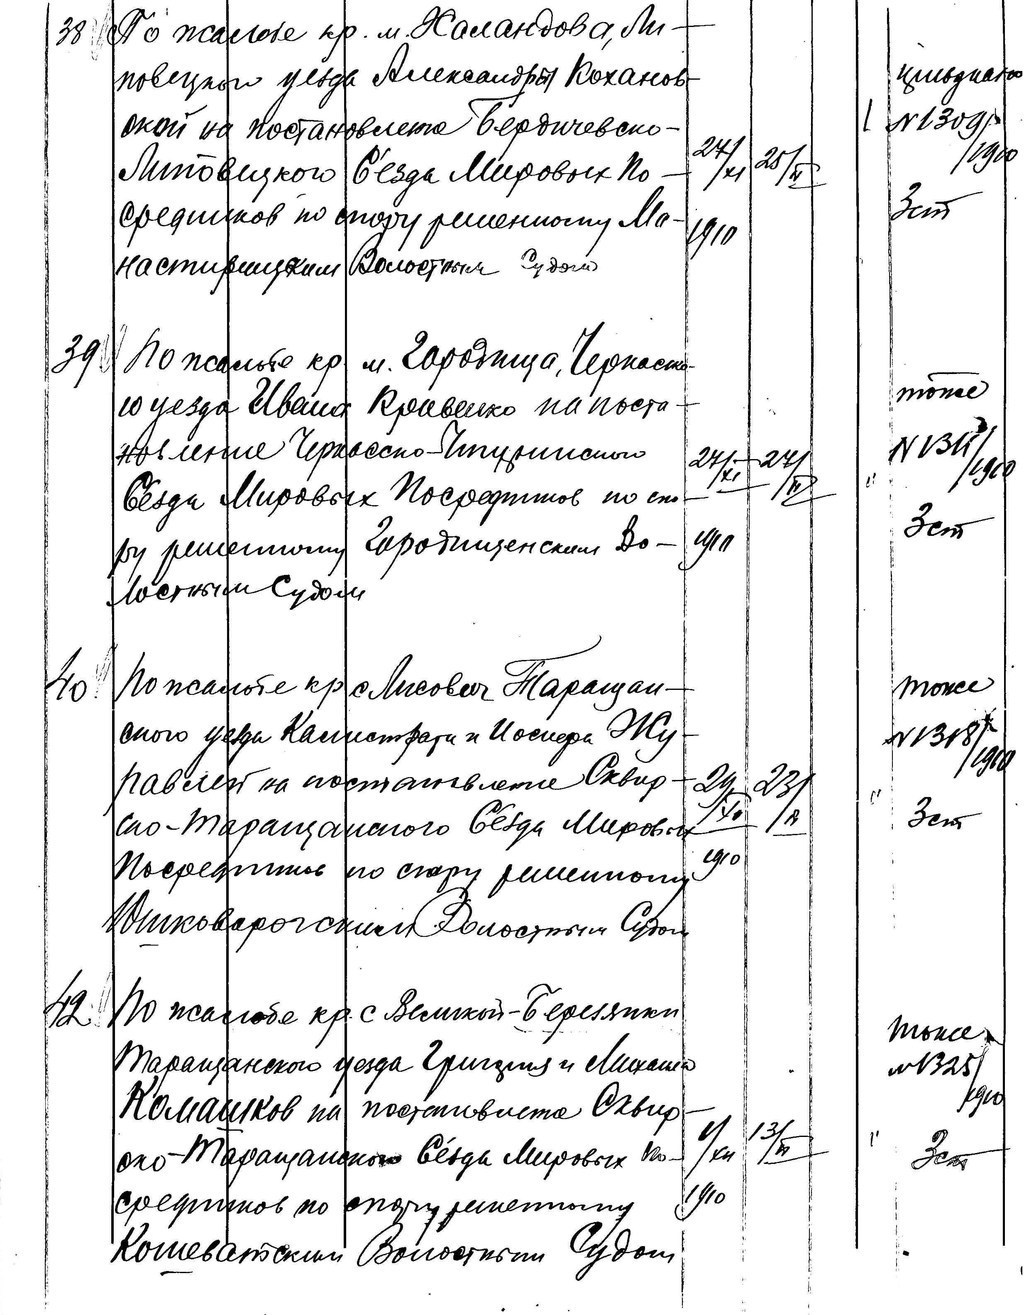 38 По жалобе кр. м. Халаидова, Ли-
повецкого уезда Александры Коханов-
ской на постановление Бердичевско-
Липовецкого Съезда Мировых По-
средников по спору решенному Мо-
настырищским Волостным Судом
27/XI 1910
25/II
1
№ 1309/1910
3 ст
39 По жалобе кр. м. Городища, Черкасско-
го уезда Ивана Кравенко на поста-
новление Черкасско-Чигиринского
Съезда Мировых Посредников по спо-
ру решенному Городищенским Во-
лостным Судом
27/XI 1910
27/II
"
тоже
№ 1311/1910
3 ст
40 По жалобе кр с Лисович Таращан-
ского уезда Калистрата и Иосифа Жу-
равлей на постановление Сквир-
ско-Таращанского Съезда Мировых
Посредников по спору решенному
Юшковарогским Волостным Судом
29/XI 1910
23/II
"
тоже
№ 1318/1910
3 ст
42 По жалобе кр с Великой-Березянки
Таращанского уезда Григория и Михаила
Комашков на постановление Сквир-
ско-Таращанского Съезда Мировых По-
средников по спору решенному
Кошеватским Волостным Судом
1/XII 1910
13/II
"
тоже
№ 1325/1910
3 ст